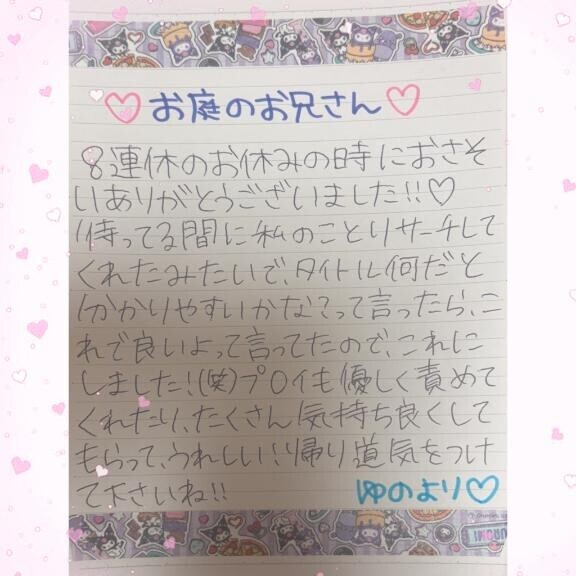 ♡お庭のお兄さん♡
8連休のお休みの時におさそ
いありがとうございました!!♡
待ってる間に私のことリサーチして
くれたみたいで、タイトル何だと
分かりやすいかな?って言ったら、こ
れで良いよって言ってたので、これに
しました!(笑)プロイも優しく責めて
くれたり、たくさん気持ち良くして
もらって、うれしい!!帰り道気をつけ
て下さいね!!
ゆのより♡
KUROMI